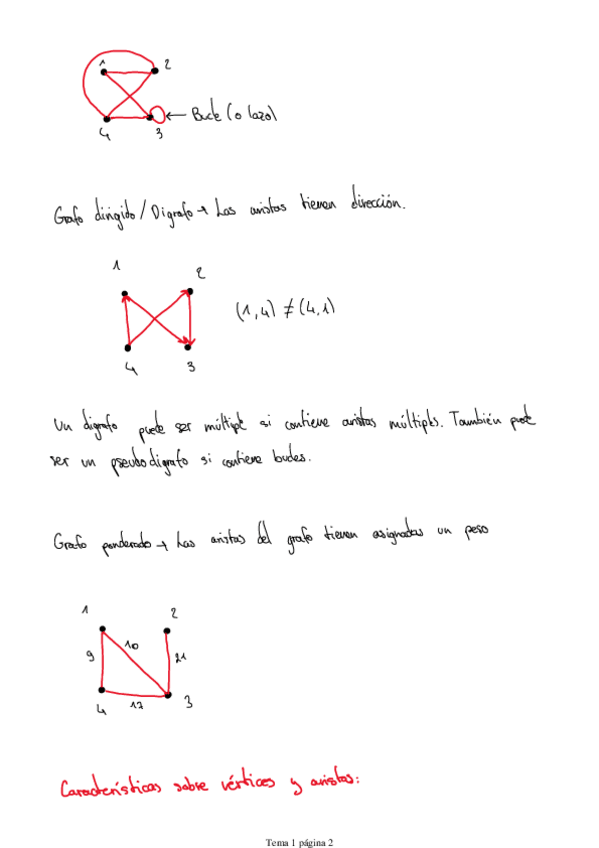 1 2
4 3 ← Bucle (o lazo)
Grafo dirigido / Digrafo → Las aristas tienen dirección.
1 2
(1,4) ≠ (4,1)
4 3
Un digrafo puede ser múltiple si contiene aristas múltiples. También puede
ser un pseudodigrafo si contiene bucles.
Grafo ponderado → Las aristas del grafo tienen asignadas un peso
1 2
10
9 21
4 17 3
Características sobre vértices y aristas:
Tema 1 página 2